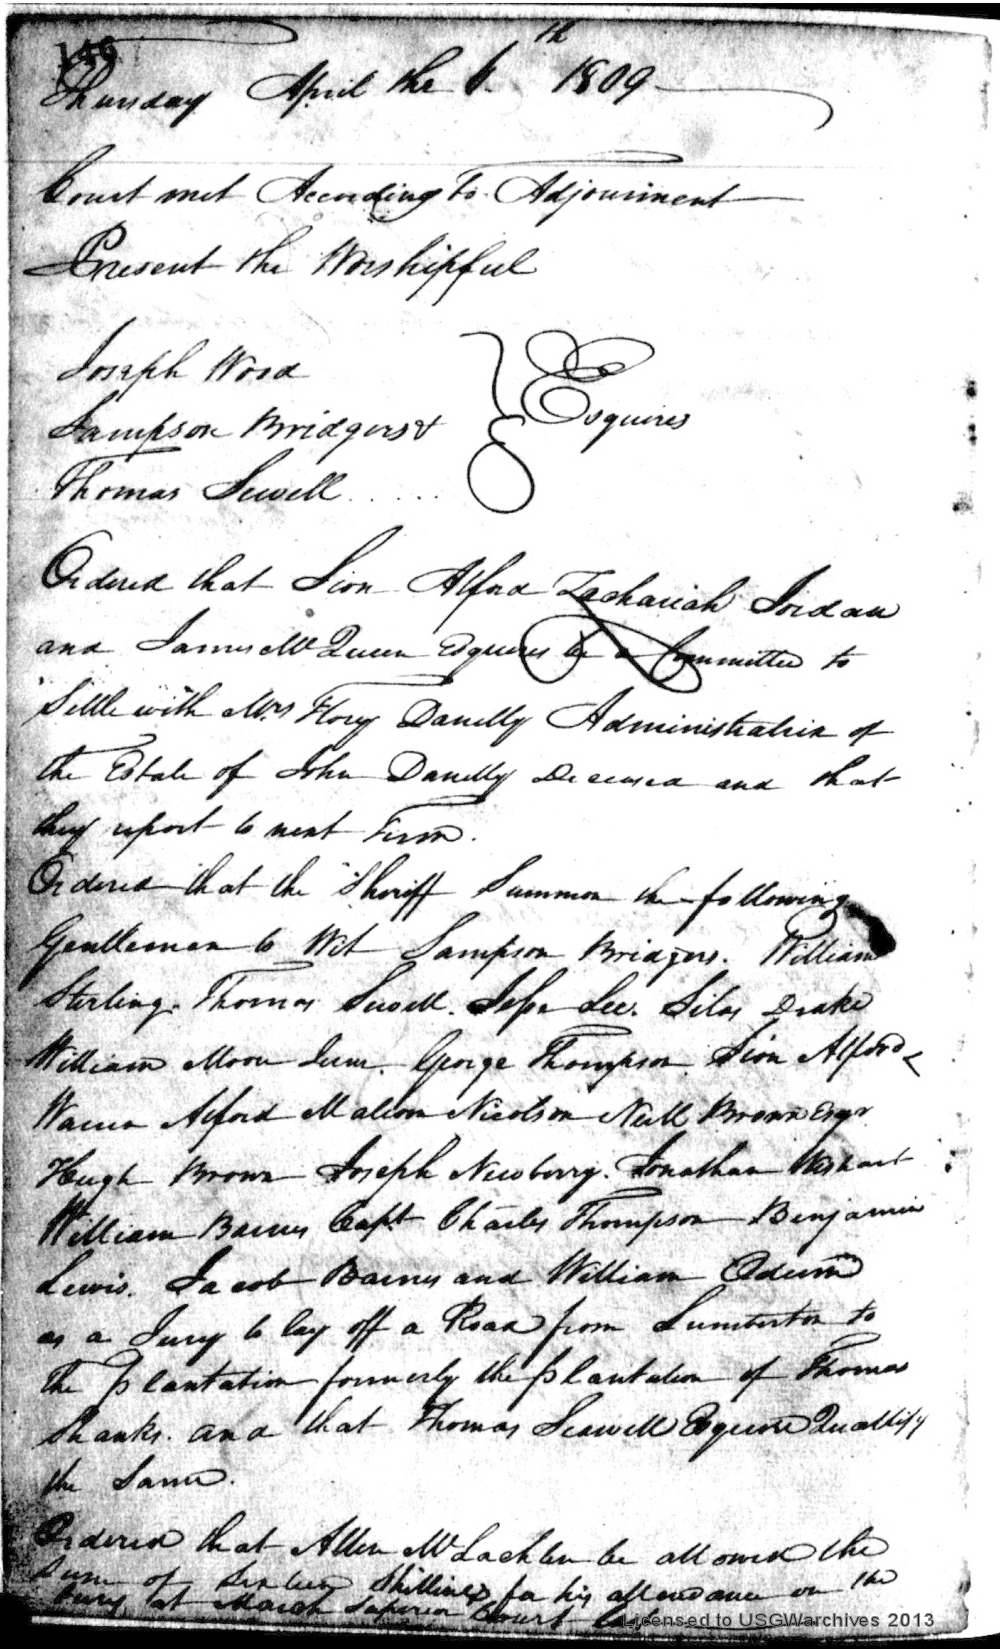 149
Thursday April the 6th 1809
Court met According to Adjournment
Present the Worshipful
Joseph Wood
Sampson Bridgers &
Thomas Sewell
Esquires
Ordered that Sion Alford Zachariah Jordan
and James McQueen Esquires be a Committee to
Settle with Mrs Flory Danelly Administratrix of
the Estate of John Danelly Deceased and that
they report to next Term.
Ordered that the Sheriff Summon the following
Gentlemen to Wit Sampson Bridgers. William
Sterling. Thomas Sewell. Jesse Lee. Silas Drake
William Moore Junr. George Thompson. Sion Alford
Warren Alford Malcom Nicolson Neill Brown Esqr
Hugh Brown Joseph Newberry. Jonathan Wishart
William Barnes Capt Charles Thompson Benjamin
Lewis. Jacob Barnes and William Odum
as a Jury to lay off a Road from Lumberton to
the Plantation formerly the plantation of Thomas
Shanks. and that Thomas Seawell Esquire Quallify
the Same.
Ordered that Allen McLachlen be allowed the
Sum of Sixteen Shillings for his attendance on the
Jury at March Superior Court
Licensed to USGWarchives 2013